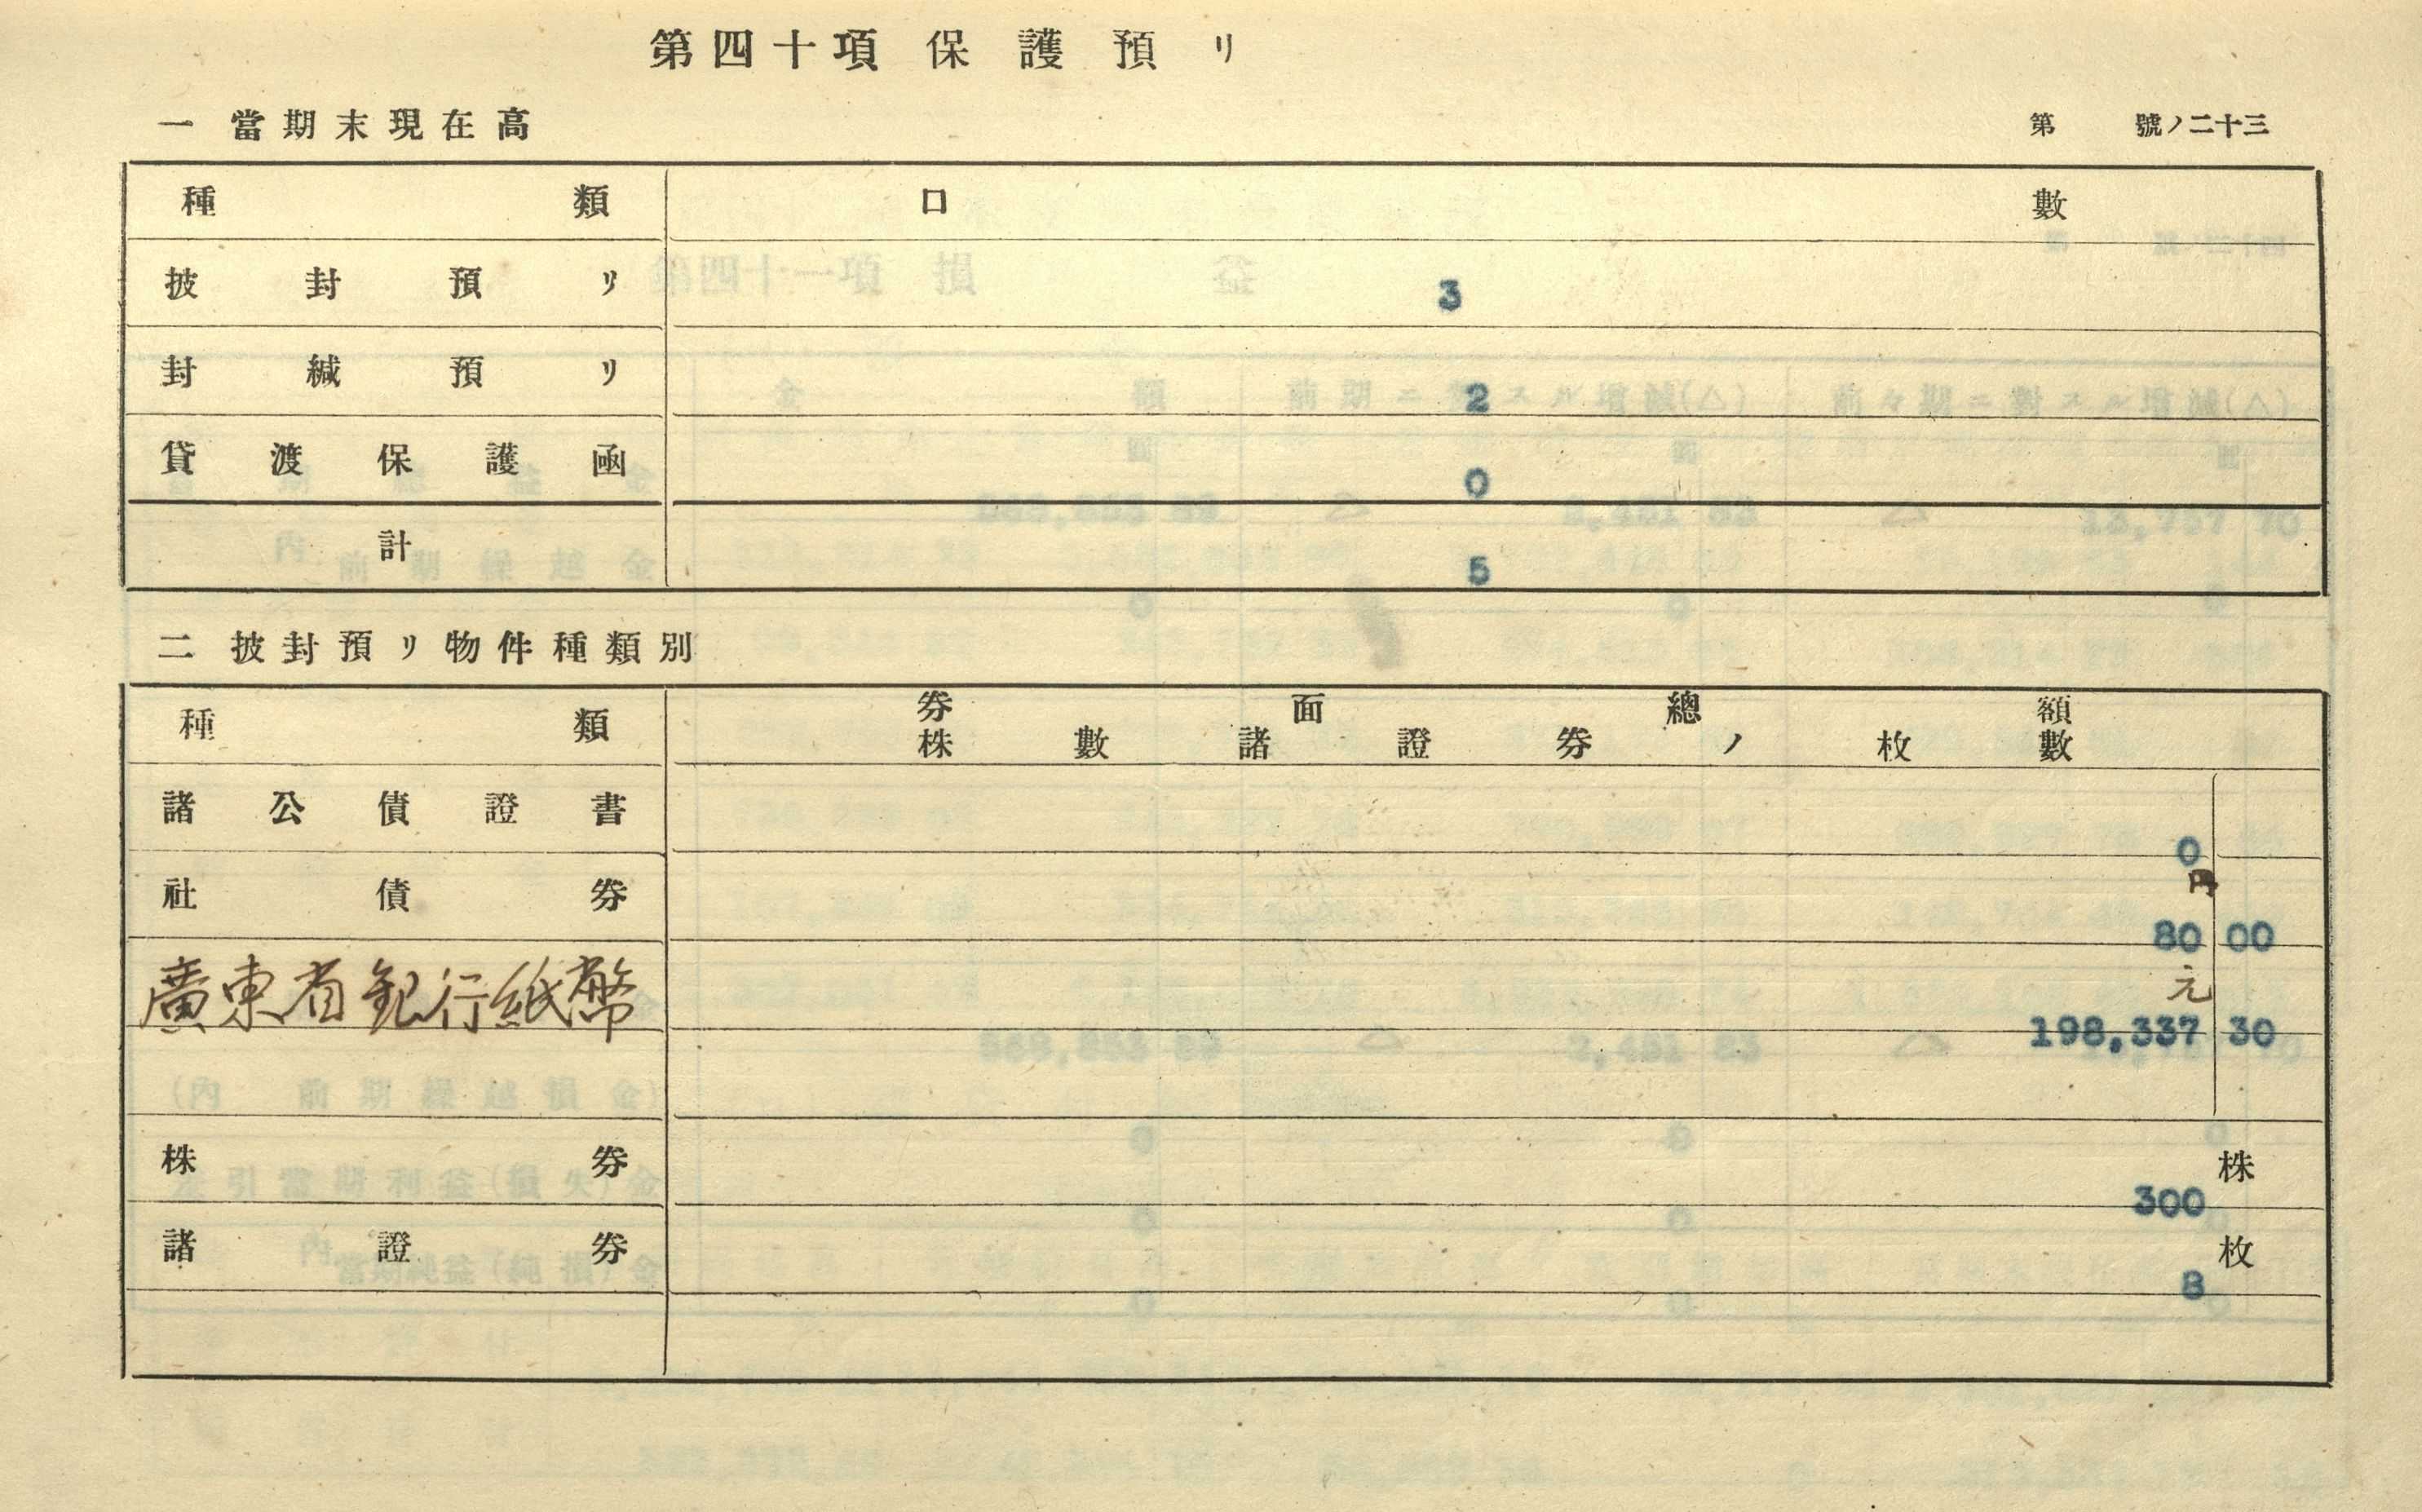 第四十項 保護預リ
一 當期末現在高
第 號ノ二十三
種類 口數
披封預リ 3
封緘預リ 2
貸渡保護函 0
計 5
二 披封預リ物件種類別
種類 券面總額
株數諸證券ノ枚數
諸公債證書 0
社債券 円 80 00
廣東省銀行紙幣 元 198,337 30
株券 株 300
諸證券 枚 8